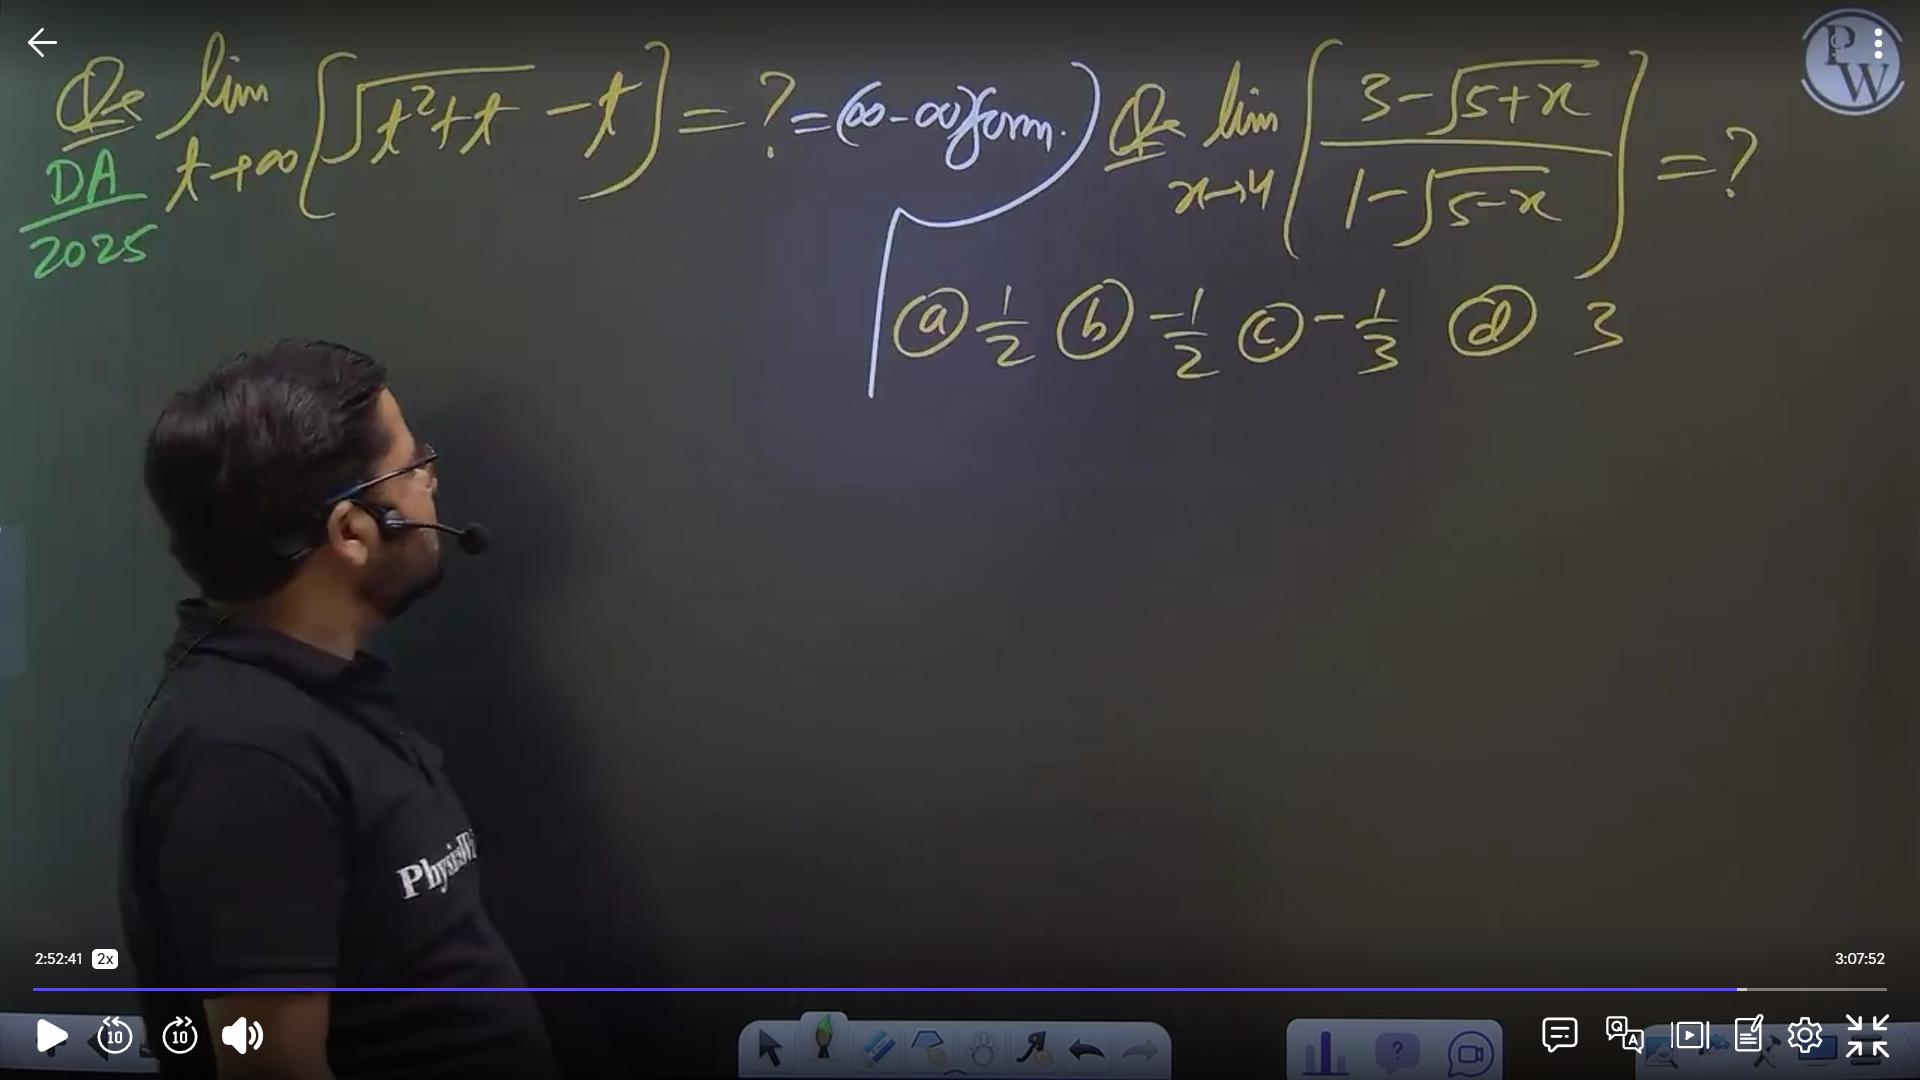 Q. lim t→∞ [√(t²+t) - t] = ? = (∞-∞) form.
DA
2025
Q. lim x→4 [(3-√(5+x))/(1-√(5-x))] = ?
ⓐ 1/2 ⓑ -1/2 ⓒ -1/3 ⓓ 3
PW
2:52:41 2x
3:07:52
10 10